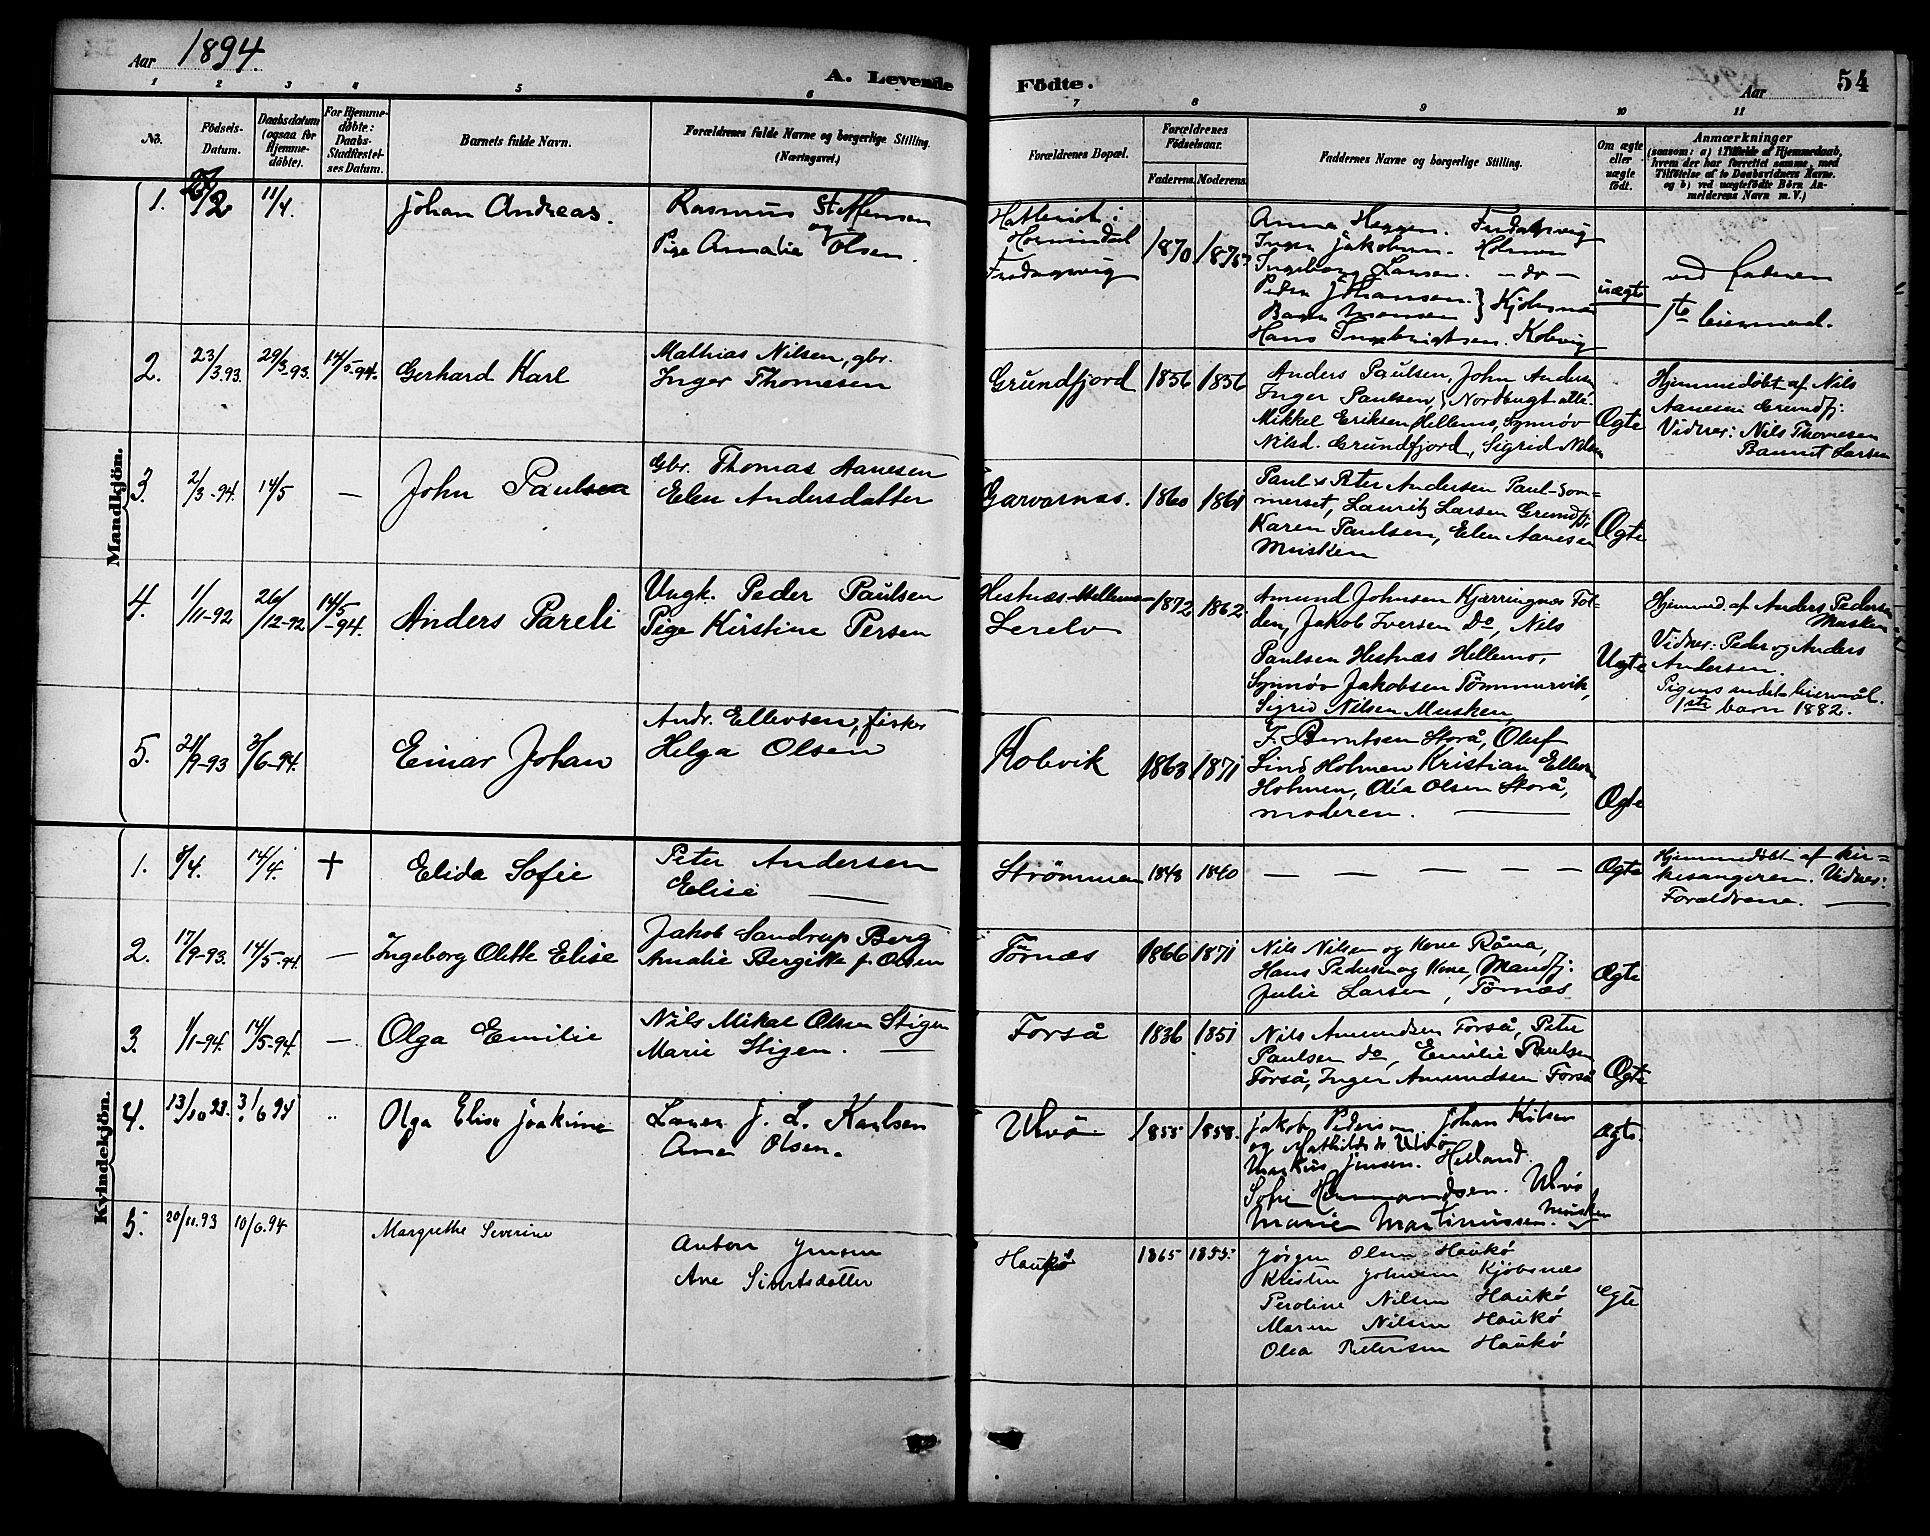 Aar 1894.
A. Levende
Födte.
Aar
54
1 2 3 4 5 6 7 8 9 10 11
No.
Födsels-Datum.
Daabsdatum (ogsaa for Hjemme-döbte).
For Hjemme-döbte: Daabs-Stadfæstel-ses Datum.
Barnets fulde Navn.
Forældrenes fulde Navne og borgerlige Stilling.
(Næringsvei.)
Forældrenes Bopæl.
Forældrenes Födselsaar.
Faderens. Moderens.
Faddernes Navne og borgerlige Stilling.
Om ægte eller uægte födt.
Anmærkninger
(saasom: a) i Tilfælde af Hjemmedaab,
hvem der har forrettet samme, med
Tilföielse af to Daabsvidners Navne.
og b) ved uægtefödte Börn An-
melderens Navn m. V.)
Mandkjön.
1. /2 11/4. Johan Andreas.
Rasmus Steffensen
og
Pige Amalie Olsen.
Hornindal
1870 1875
Anna Heggen.
Inger Jakobsen. Holmen
Ingeborg Larsen. – do –
Peder Johansen.
Hans Ingebrigtsen. Kobvig
uægte
ved faderen
1ste leiermaal.
2. 23/3.93. 29/3-93. 14/5-94. Gerhard Karl
Mathias Nilsen, gbr.
Inger Thomesen
Grundfjord 1856 1856
Anders Paulsen, John Andersen
Inger Paulsen, Nordbugt alle.
Mikkel Eriksen Hellemo, Synnöv
Nilsd. Grundfjord, Sigrid Nilsen
Ægte
Hjemmedöbt af Nils
Aanesen Grundfj.
Vidner: Nils Thomesen
Larsen
3. 2/3-94. 14/5 — John Paulsen
Gbr. Thomas Aanesen
Elen Andersdatter
Garvarnæs. 1860 1861
Paul & Peter Andersen Paul-Som=
merset, Lauritz Larsen Grundfj,
Karen Paulsen, Elen Aanesen
Musken
Ægte
4. 1/11-92 26/12-92 14/5-94. Anders Pareli
Ungk. Peder Paulsen
Pige Kirstine Persen
Hestnæs-Hellemo
1872 1862
Amund Johnsen Kjærringnæs
Jakob Iversen do, Nils
Paulsen Hestnæs Hellemo,
Synnöv Jakobsen Tömmervik,
Sigrid Nilsen Musken,
Uægte
Hjemmd. af Anders Pedersen
Musken
Vidner: Peder og Anders
Andersen.
Pigens andet leiermål.
1ste barn 1882.
5. 21/9-93 3/6-94. Einar Johan
Andr. Ellevsen, fisker
Helga Olsen
Kobvik 1863 1871
F. Berntsen Storå, Oluf
Lind Holmen Kristian Ellevsen
Holmen, Olsen Storå,
moderen. —
Ægte
Kvindekjön.
1. 8/4. 14/4. + Elida Sofie
Peter Andersen
Elise —
Strömmen 1843 1840 — — — — —
Ægte
Hjemmedöbt af kir=
kesangeren. Vidner:
Forældrene. —
2. 17/9-93. 14/5-94. — Ingeborg Olette Elise
Jakob Sandrup Berg
Amalie Bergitte f. Olsen
Törnæs 1866 1871
Nils Nilsen og Kone Råna,
Hans Pedersen og Kone, Mandfj.
Julie Larsen, Törnæs
Ægte
3. 1/1-94. 14/5-94. — Olga Emilie
Nils Mikal Olsen Stigen
Marie Stigen. —
Forså 1836 1851
Nils Amundsen Forså, Peter
Paulsen do, Emilie Paulsen
Forså, Inger Amundsen Forså
Ægte
4. 13/10 93. 3/6 94 „ Olga Elise Joakime
J. L. Karlsen
Ane Olsen.
Ulvö 1855 1858.
Jakob Pedersen. Johan
og Mathilde do Ulvö
Markus Jensen. Helland.
Sofie Hermandsen. Ulvö
Marie Martinussen. Musken
Ægte.
5. 20/11.93 10/6.94 Margrethe Severine
Anton Jensen
Ane Sivertsdatter
Haukö 1865 1855.
Jörgen Olsen Haukö
Kristen Johnsen Kjöbsnæs
Peroline Nilsen Haukö
Maren Nilsen Haukö
Olea Pettersen Haukö
Ægte